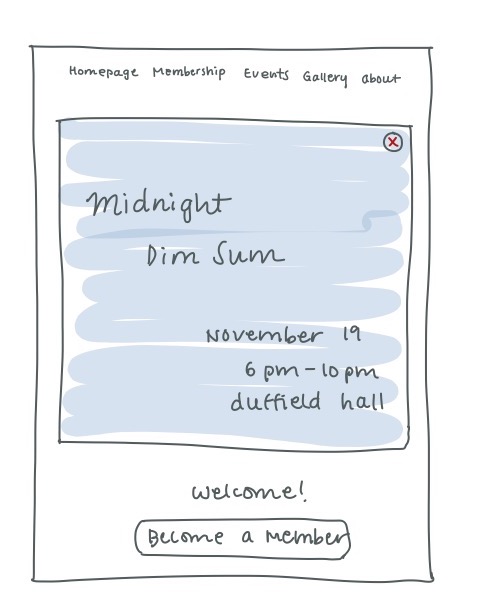 Homepage Membership Events Gallery about
x
Midnight
Dim Sum
November 19
6 pm - 10 pm
duffield hall
Welcome!
Become a Member